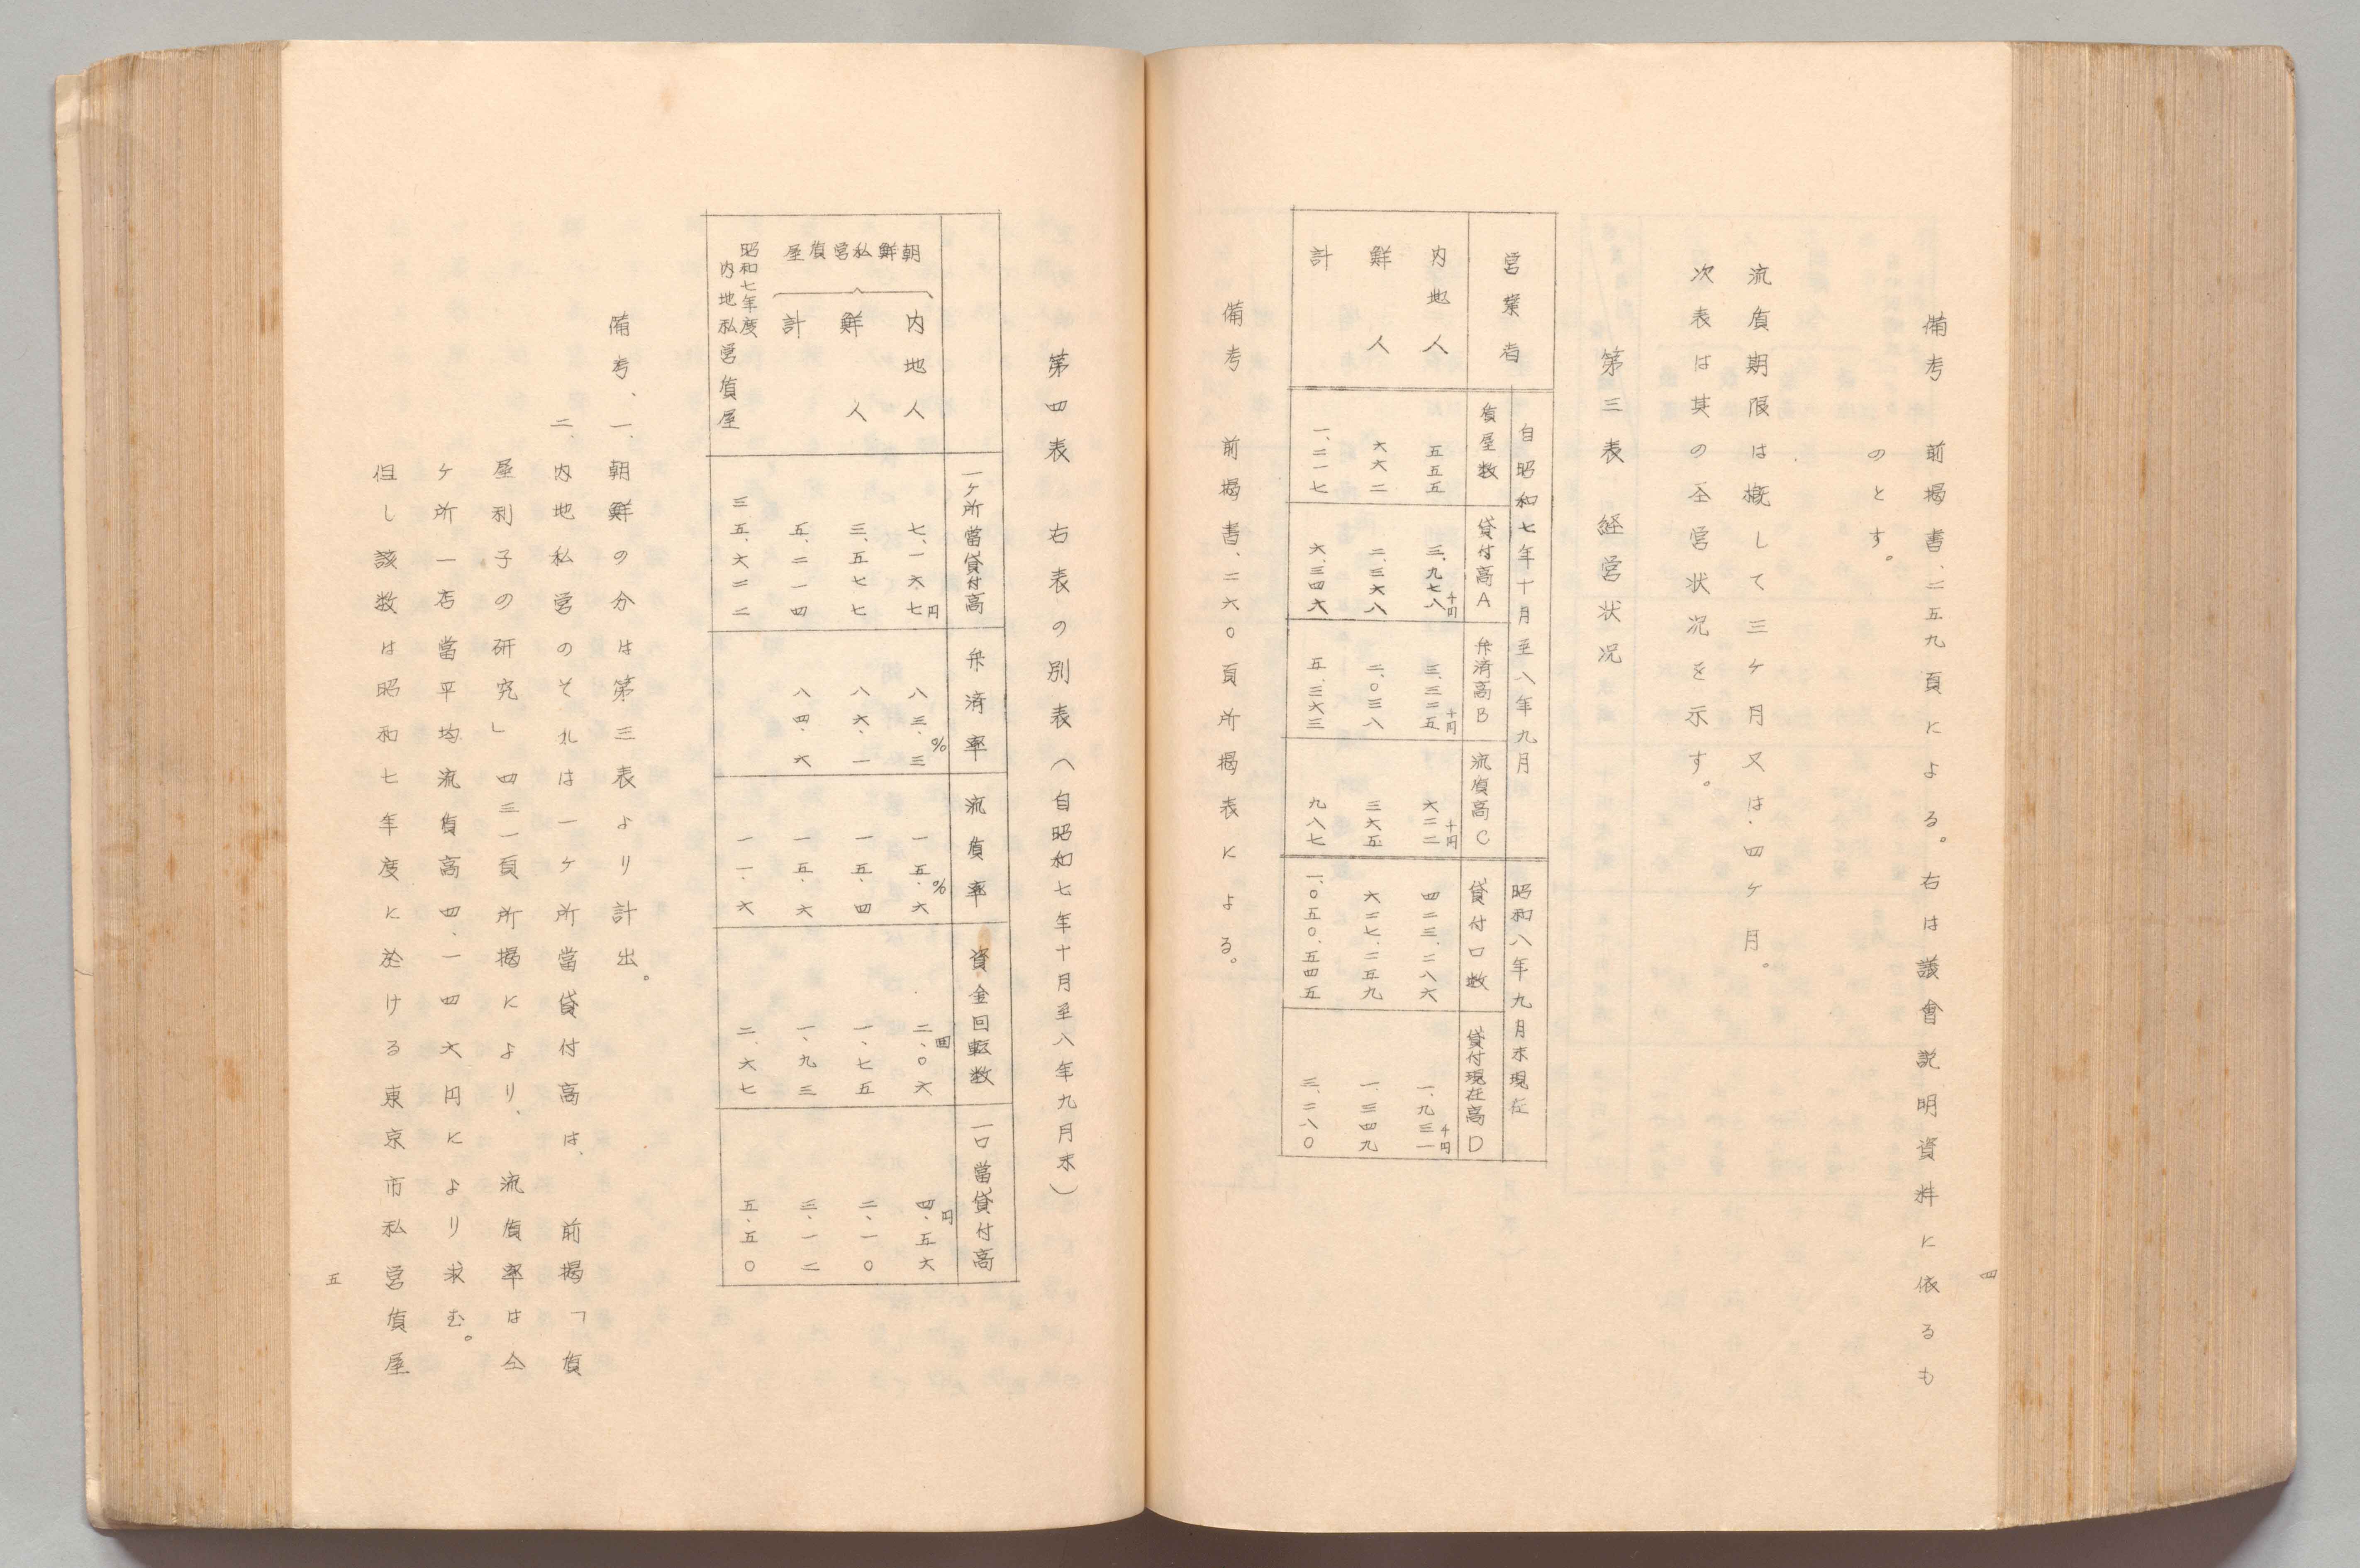 四
備考　前掲書、二五九頁による。右は議會説明資料に依るも
のとす。
流質期限は概して三ケ月又は四ケ月。
次表は其の圣営状況を示す。
第三表　経営状況
営業者　自昭和七年十月至八年九月　昭和八年九月末現在
質屋数　貸付高A　弁済高B　流質高C　貸付口数　貸付現在高D
内地人　五五五　三、九七八千円　三、三二五千円　六二二千円　四二三、二八六　一、九三一千円
鮮人　六六二　二、三六八　二、〇三八　三六五　六二七、二五九　一、三四九
計　一、二一七　六、三四六　五、三六三　九八七　一、〇五〇、五四五　三、二八〇
備考　前掲書、二六〇頁所掲表による。
第四表　右表の別表（自昭和七年十月至八年九月末）
一ケ所當貸付高　弁済率　流質率　資金回転数　一口當貸付高
朝鮮私営質屋
内地人　七、一六七円　八三・三%　一五・六%　二、〇六回　四・五六円
鮮人　三、五七七　八六・一　一五・四　一、七五　二・一〇
計　五、二一四　八四・六　一五・六　一、九三　三・一二
昭和七年度
内地私営質屋　三五、六二二　一一・六　二・六七　五・五〇
備考、一、朝鮮の分は第三表より計出。
二、内地私営のそれは一ケ所當貸付高は、前掲「質
屋利子の研究」四三一頁所掲により、流質率は仝
ケ所一店當平均流質高四、一四六円により求む。
但し該数は昭和七年度に於ける東京市私営質屋
五